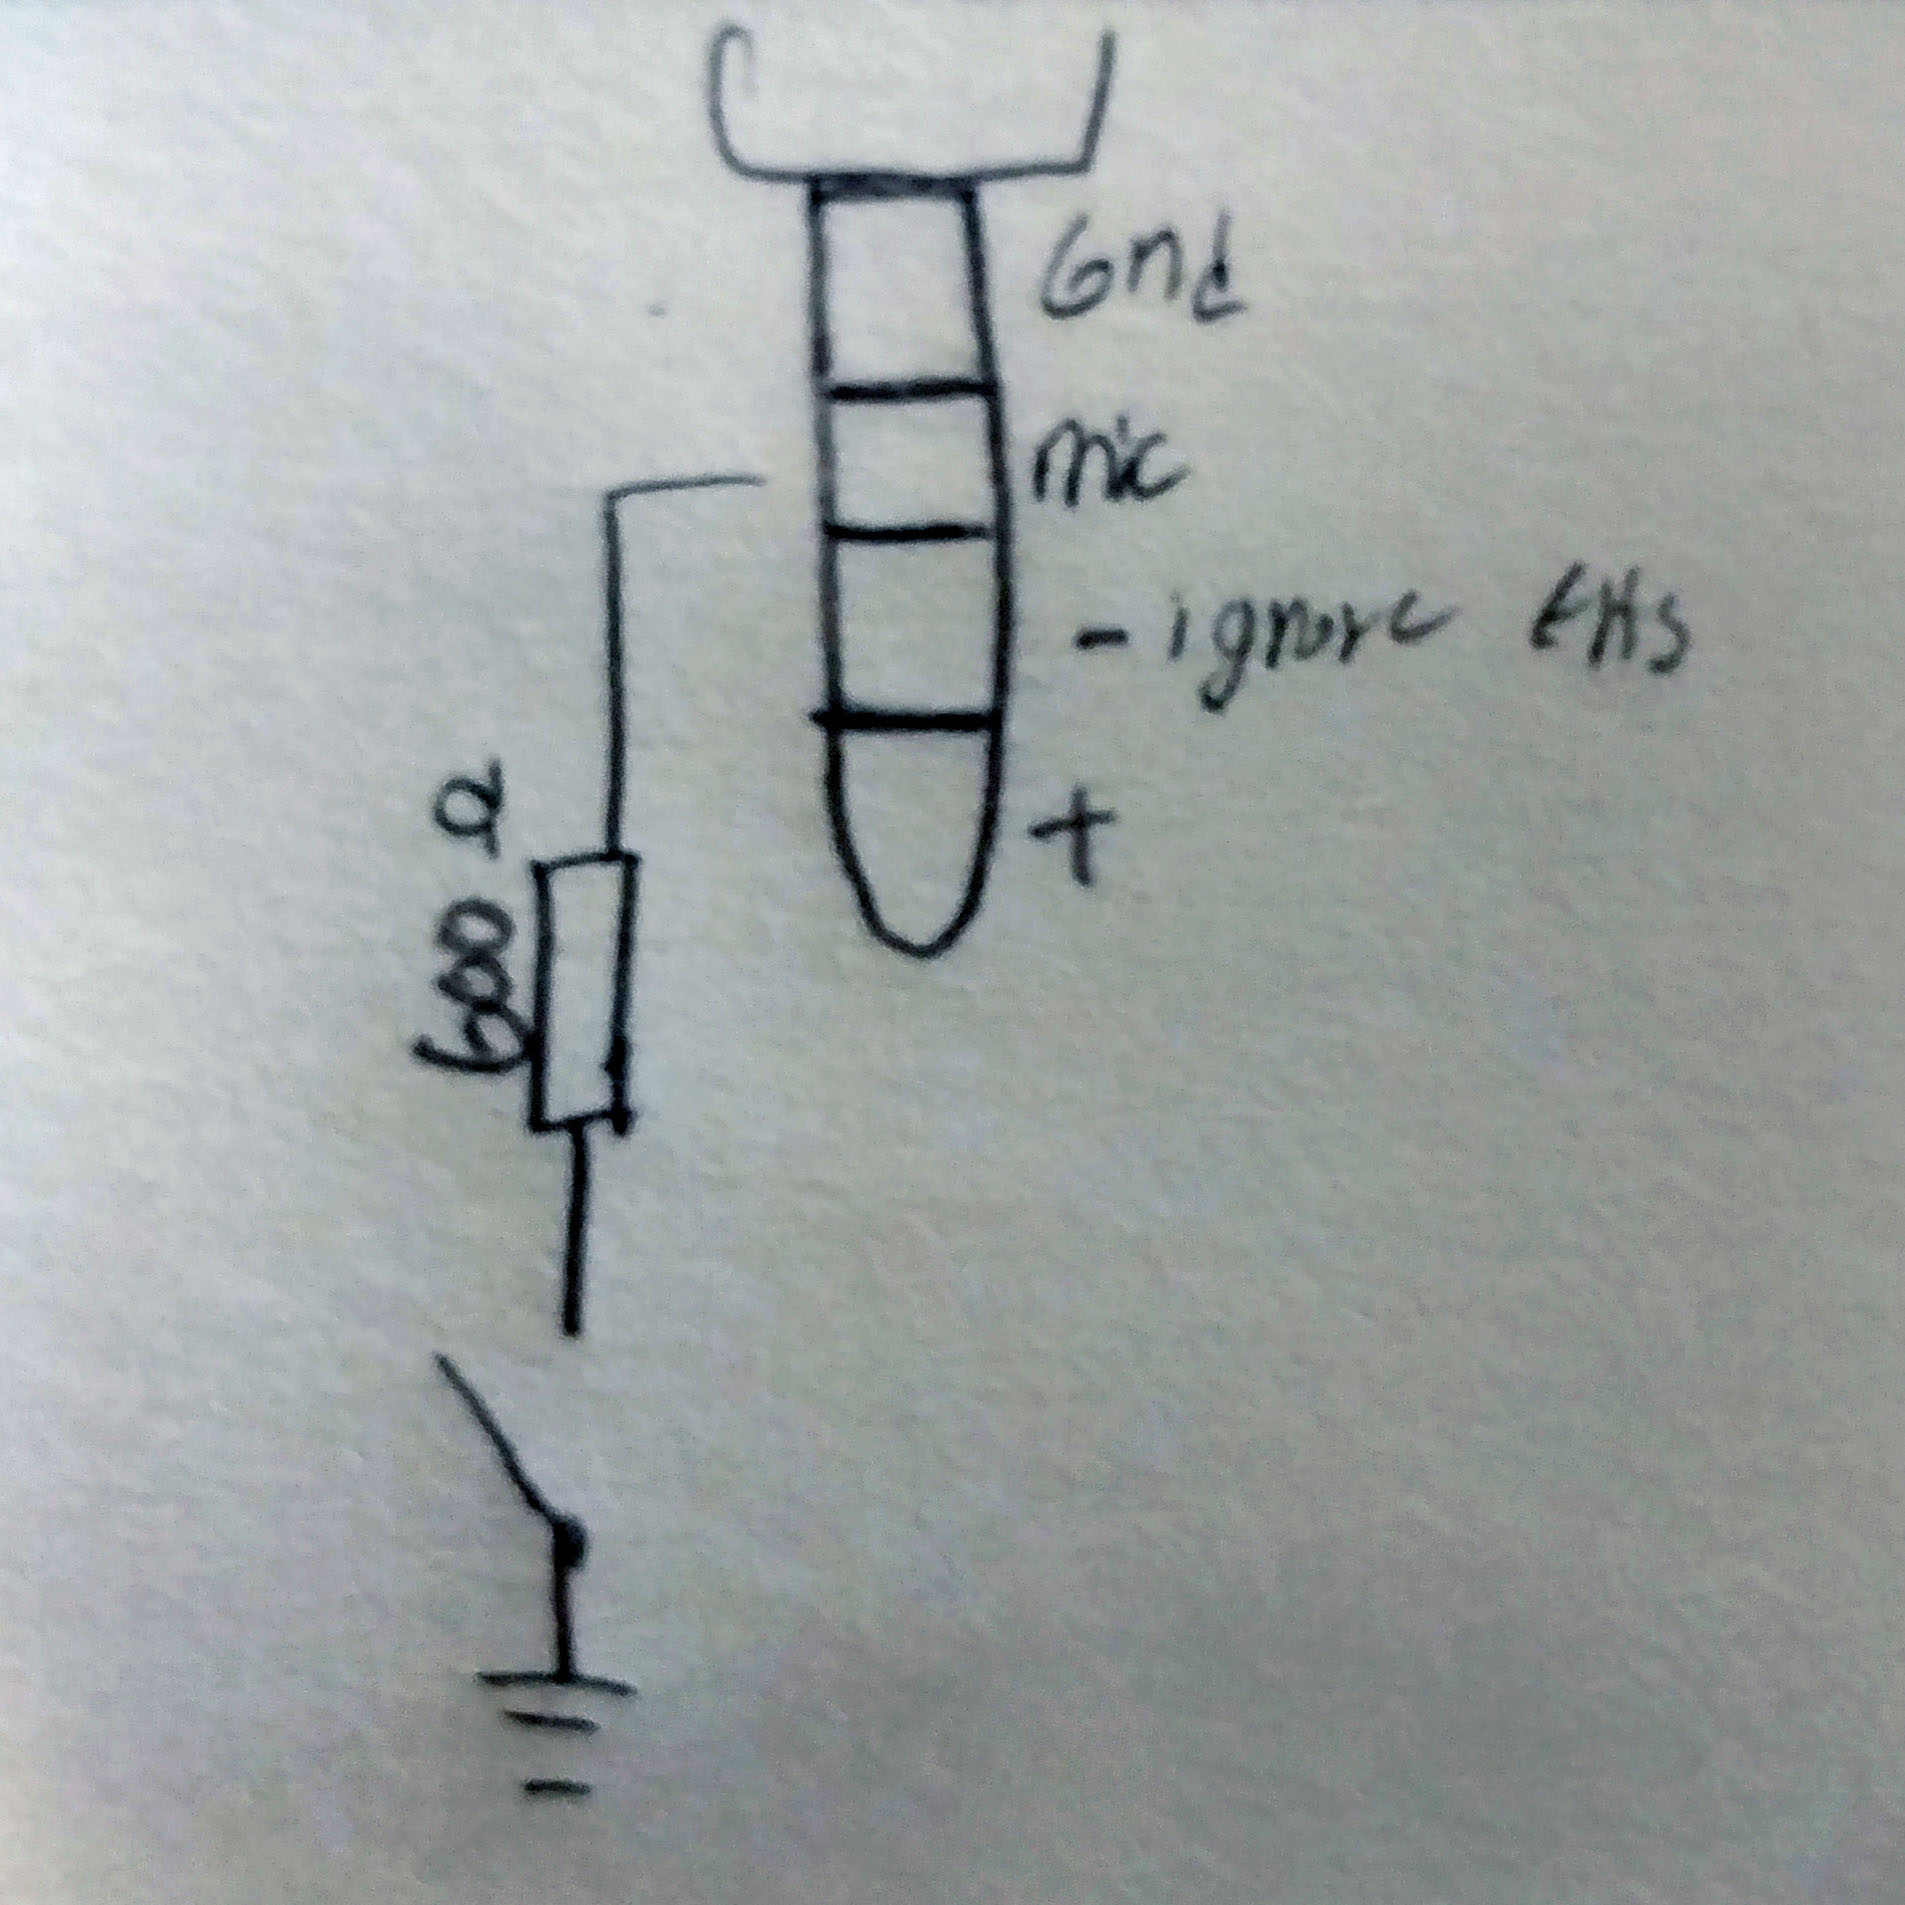 Gnd
mic
- ignore EHS
+
600 Ω